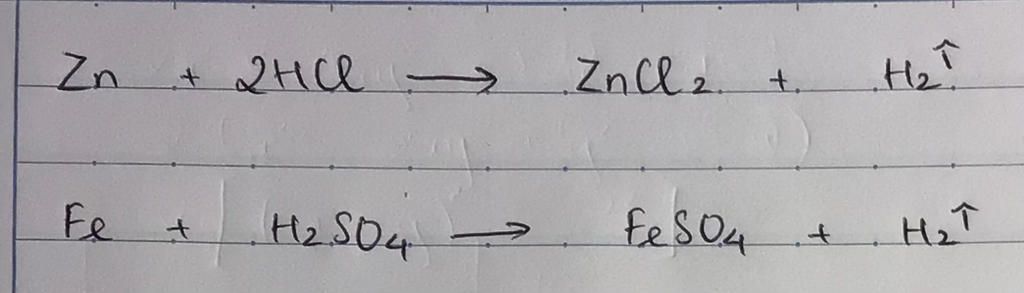 Zn + 2HCl ⟶ ZnCl₂ + H₂↑
Fe + H₂SO₄ ⟶ FeSO₄ + H₂↑